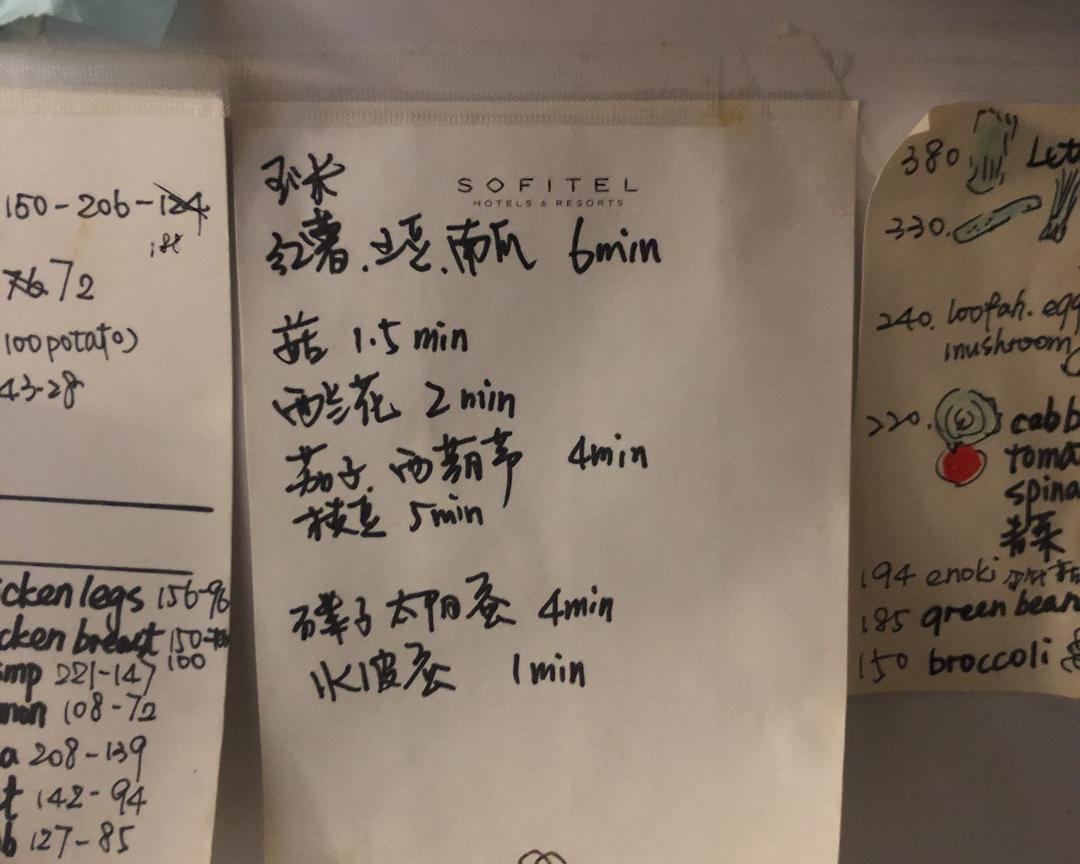 150-206-124
188
76 72
100 potato)
43-28
cken legs 156-96
cken breast 150-
100
mp 221-147
108-72
a 208-139
t 142-94
b 127-85
玉米
SOFITEL
HOTELS & RESORTS
红薯.土豆.南瓜 6min
菇 1.5 min
西兰花 2 min
茄子.西葫芦 4min
豆 5min
子 太阳蛋 4min
水波蛋 1min
380. Let
330.
240. loofah. egg
mushroom
220. cabb
toma
spina
青菜
194 enoki 金针菇
185 green bean
150 broccoli